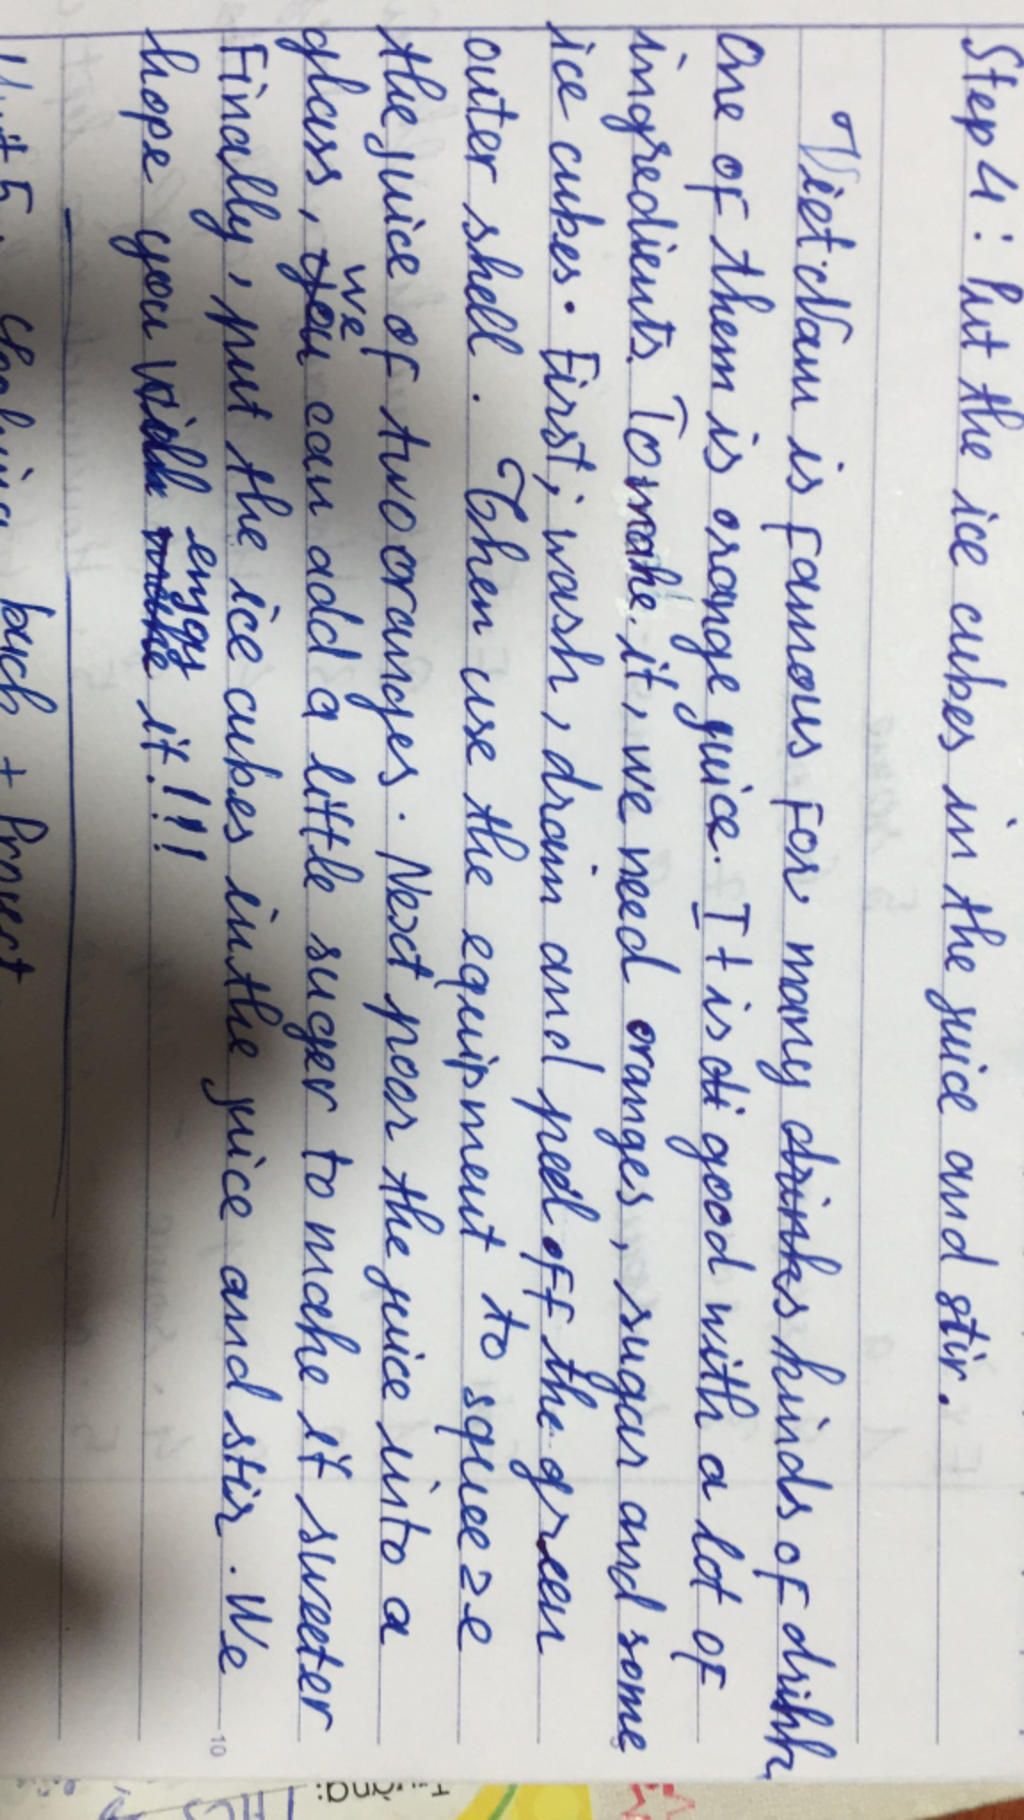 Step 4: Put the ice cubes in the juice and stir.
Viet Nam is famous for many drinks kinds of drink
One of them is orange juice. It is di good with a lot of
ingredients. To make it, we need oranges, sugar and some
ice cubes. First, wash, drain and peel off the green
outer shell. Then use the equipment to squeeze
the juice of two oranges. Next poor the juice into a
glass, you we can add a little suger to make it sweeter
Finally, put the ice cubes in the juice and stir. We
hope you make enjoy it!!!
10